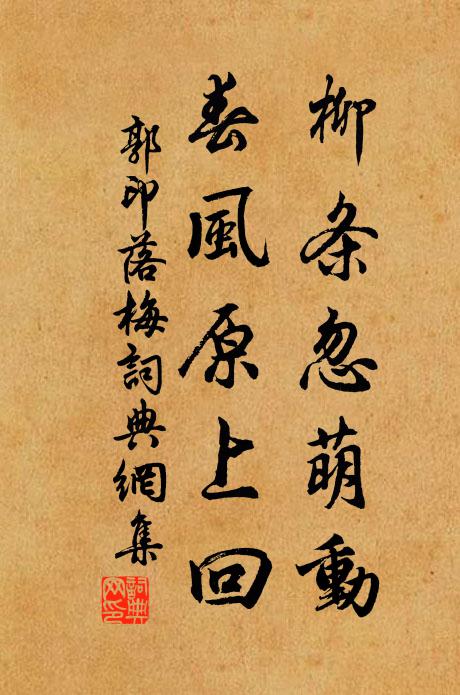 柳条忽萌動
春風原上回
郭印落梅詞典網集
詞典网印